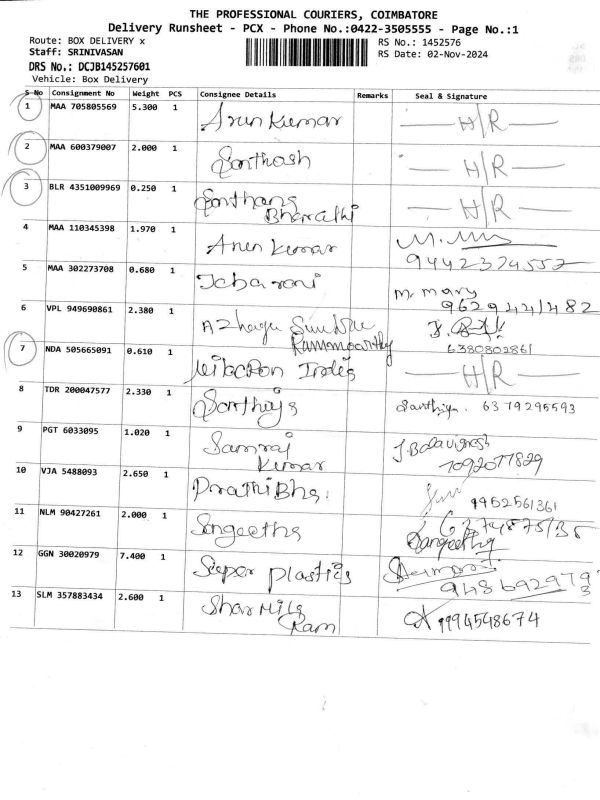 THE PROFESSIONAL COURIERS, COIMBATORE
Delivery Runsheet - PCX - Phone No.:0422-3505555 - Page No.:1
Route: BOX DELIVERY x
RS No.: 1452576
Staff: SRINIVASAN
RS Date: 02-Nov-2024
DRS No.: DCJB145257601
Vehicle: Box Delivery
S No Consignment No Weight PCS Consignee Details Remarks Seal & Signature
1 MAA 705805569 5.300 1 Arun Kumar H/R
2 MAA 600379007 2.000 1 Santhosh H/R
3 BLR 4351009969 0.250 1 Santhana H/R
Bharathi
4 MAA 110345398 1.970 1 Arun Kumar
9442374557
5 MAA 302273708 0.680 1 Jebarani M. mary
9629441482
6 VPL 949690861 2.380 1 Azhagu
Rammoorthy
6380802861
7 NDA 505665091 0.610 1 H/R
8 TDR 200047577 2.330 1 Santhiya Santhiya. 6379295593
9 PGT 6033095 1.020 1 Samraj J.Balavignesh
Kumar 7092077829
10 VJA 5488093 2.650 1 Prathibha. 9952561361
11 NLM 90427261 2.000 1 Sangeetha
Sangeetha
12 GGN 30020979 7.400 1 Super plastics
13 SLM 357883434 2.600 1 Sharmila 9994548674
Ram